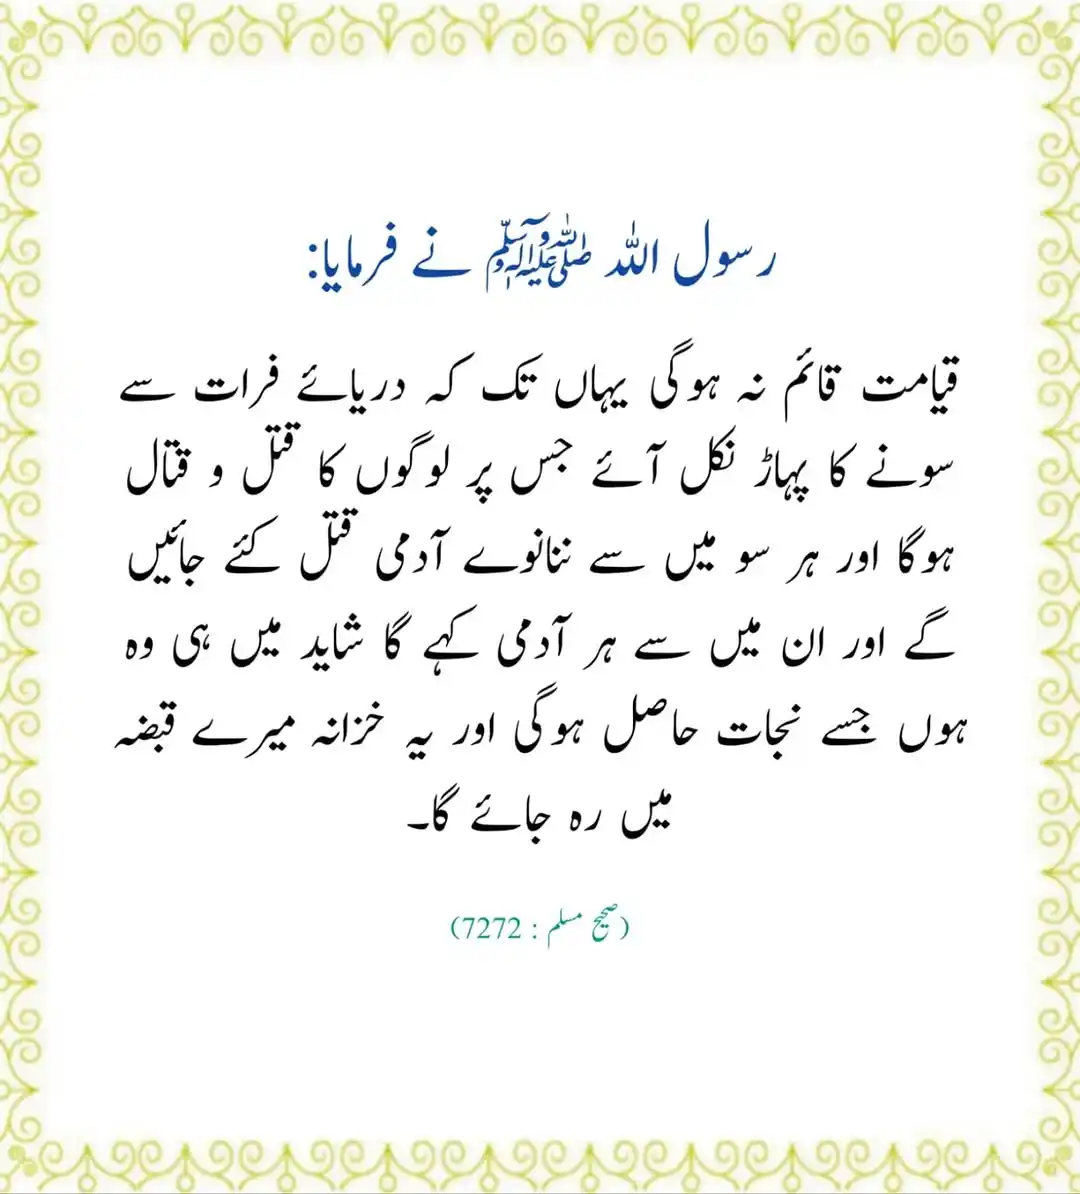 رسول اللہ ﷺ نے فرمایا:
قیامت قائم نہ ہوگی یہاں تک کہ دریائے فرات سے
سونے کا پہاڑ نکل آئے جس پر لوگوں کا قتل و قتال
ہوگا اور ہر سو میں سے ننانوے آدمی قتل کئے جائیں
گے اور ان میں سے ہر آدمی کہے گا شاید میں ہی وہ
ہوں جسے نجات حاصل ہوگی اور یہ خزانہ میرے قبضہ
میں رہ جائے گا۔
(صحیح مسلم : 7272)